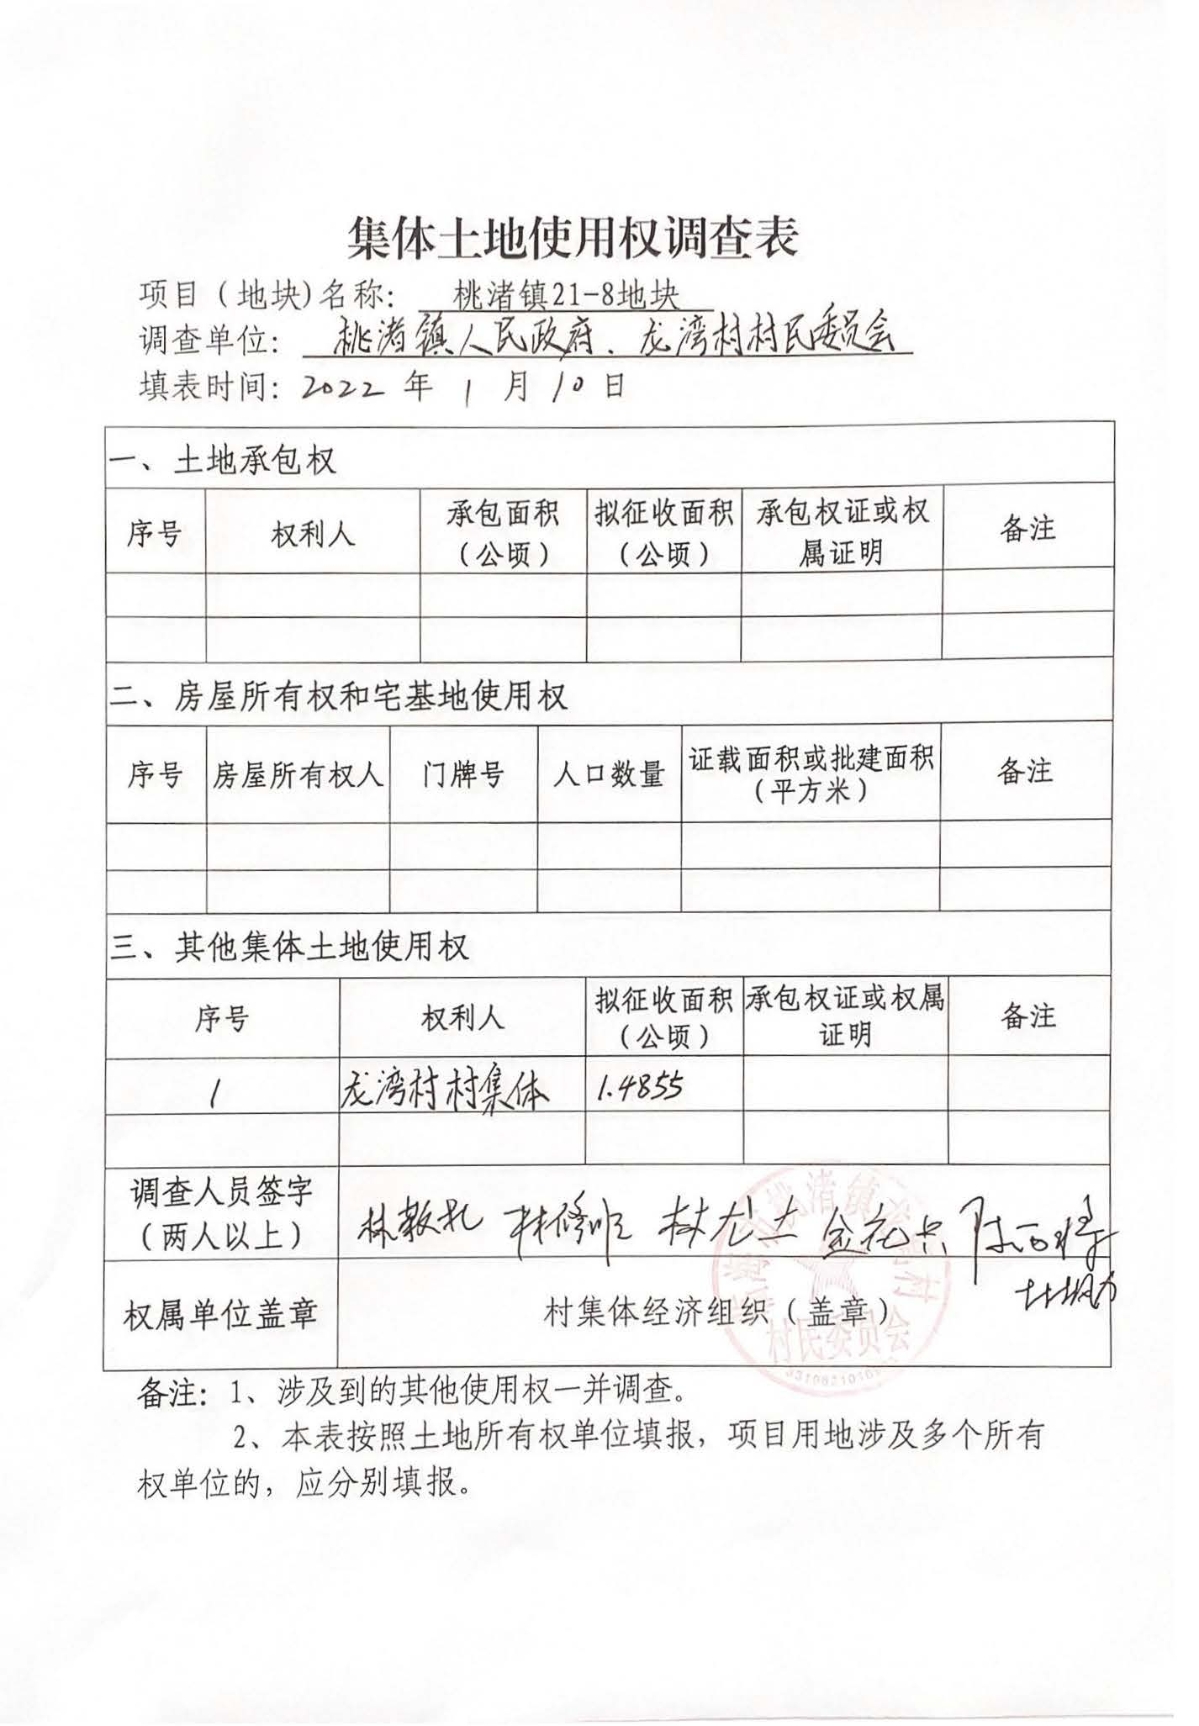 集体土地使用权调查表
项目（地块)名称： 桃渚镇21-8地块
调查单位: 桃渚镇人民政府、龙湾村村民委员会
填表时间: 2022 年 1 月 10 日
一、土地承包权
序号 权利人 承包面积（公顷） 拟征收面积（公顷） 承包权证或权属证明 备注
二、房屋所有权和宅基地使用权
序号 房屋所有权人 门牌号 人口数量 证载面积或批建面积（平方米） 备注
三、其他集体土地使用权
序号 权利人 拟征收面积（公顷） 承包权证或权属证明 备注
1 龙湾村村集体 1.4855
调查人员签字（两人以上） 林修顺
权属单位盖章 村集体经济组织（盖章）
村民委员会
备注: 1、涉及到的其他使用权一并调查。
2、本表按照土地所有权单位填报，项目用地涉及多个所有
权单位的，应分别填报。